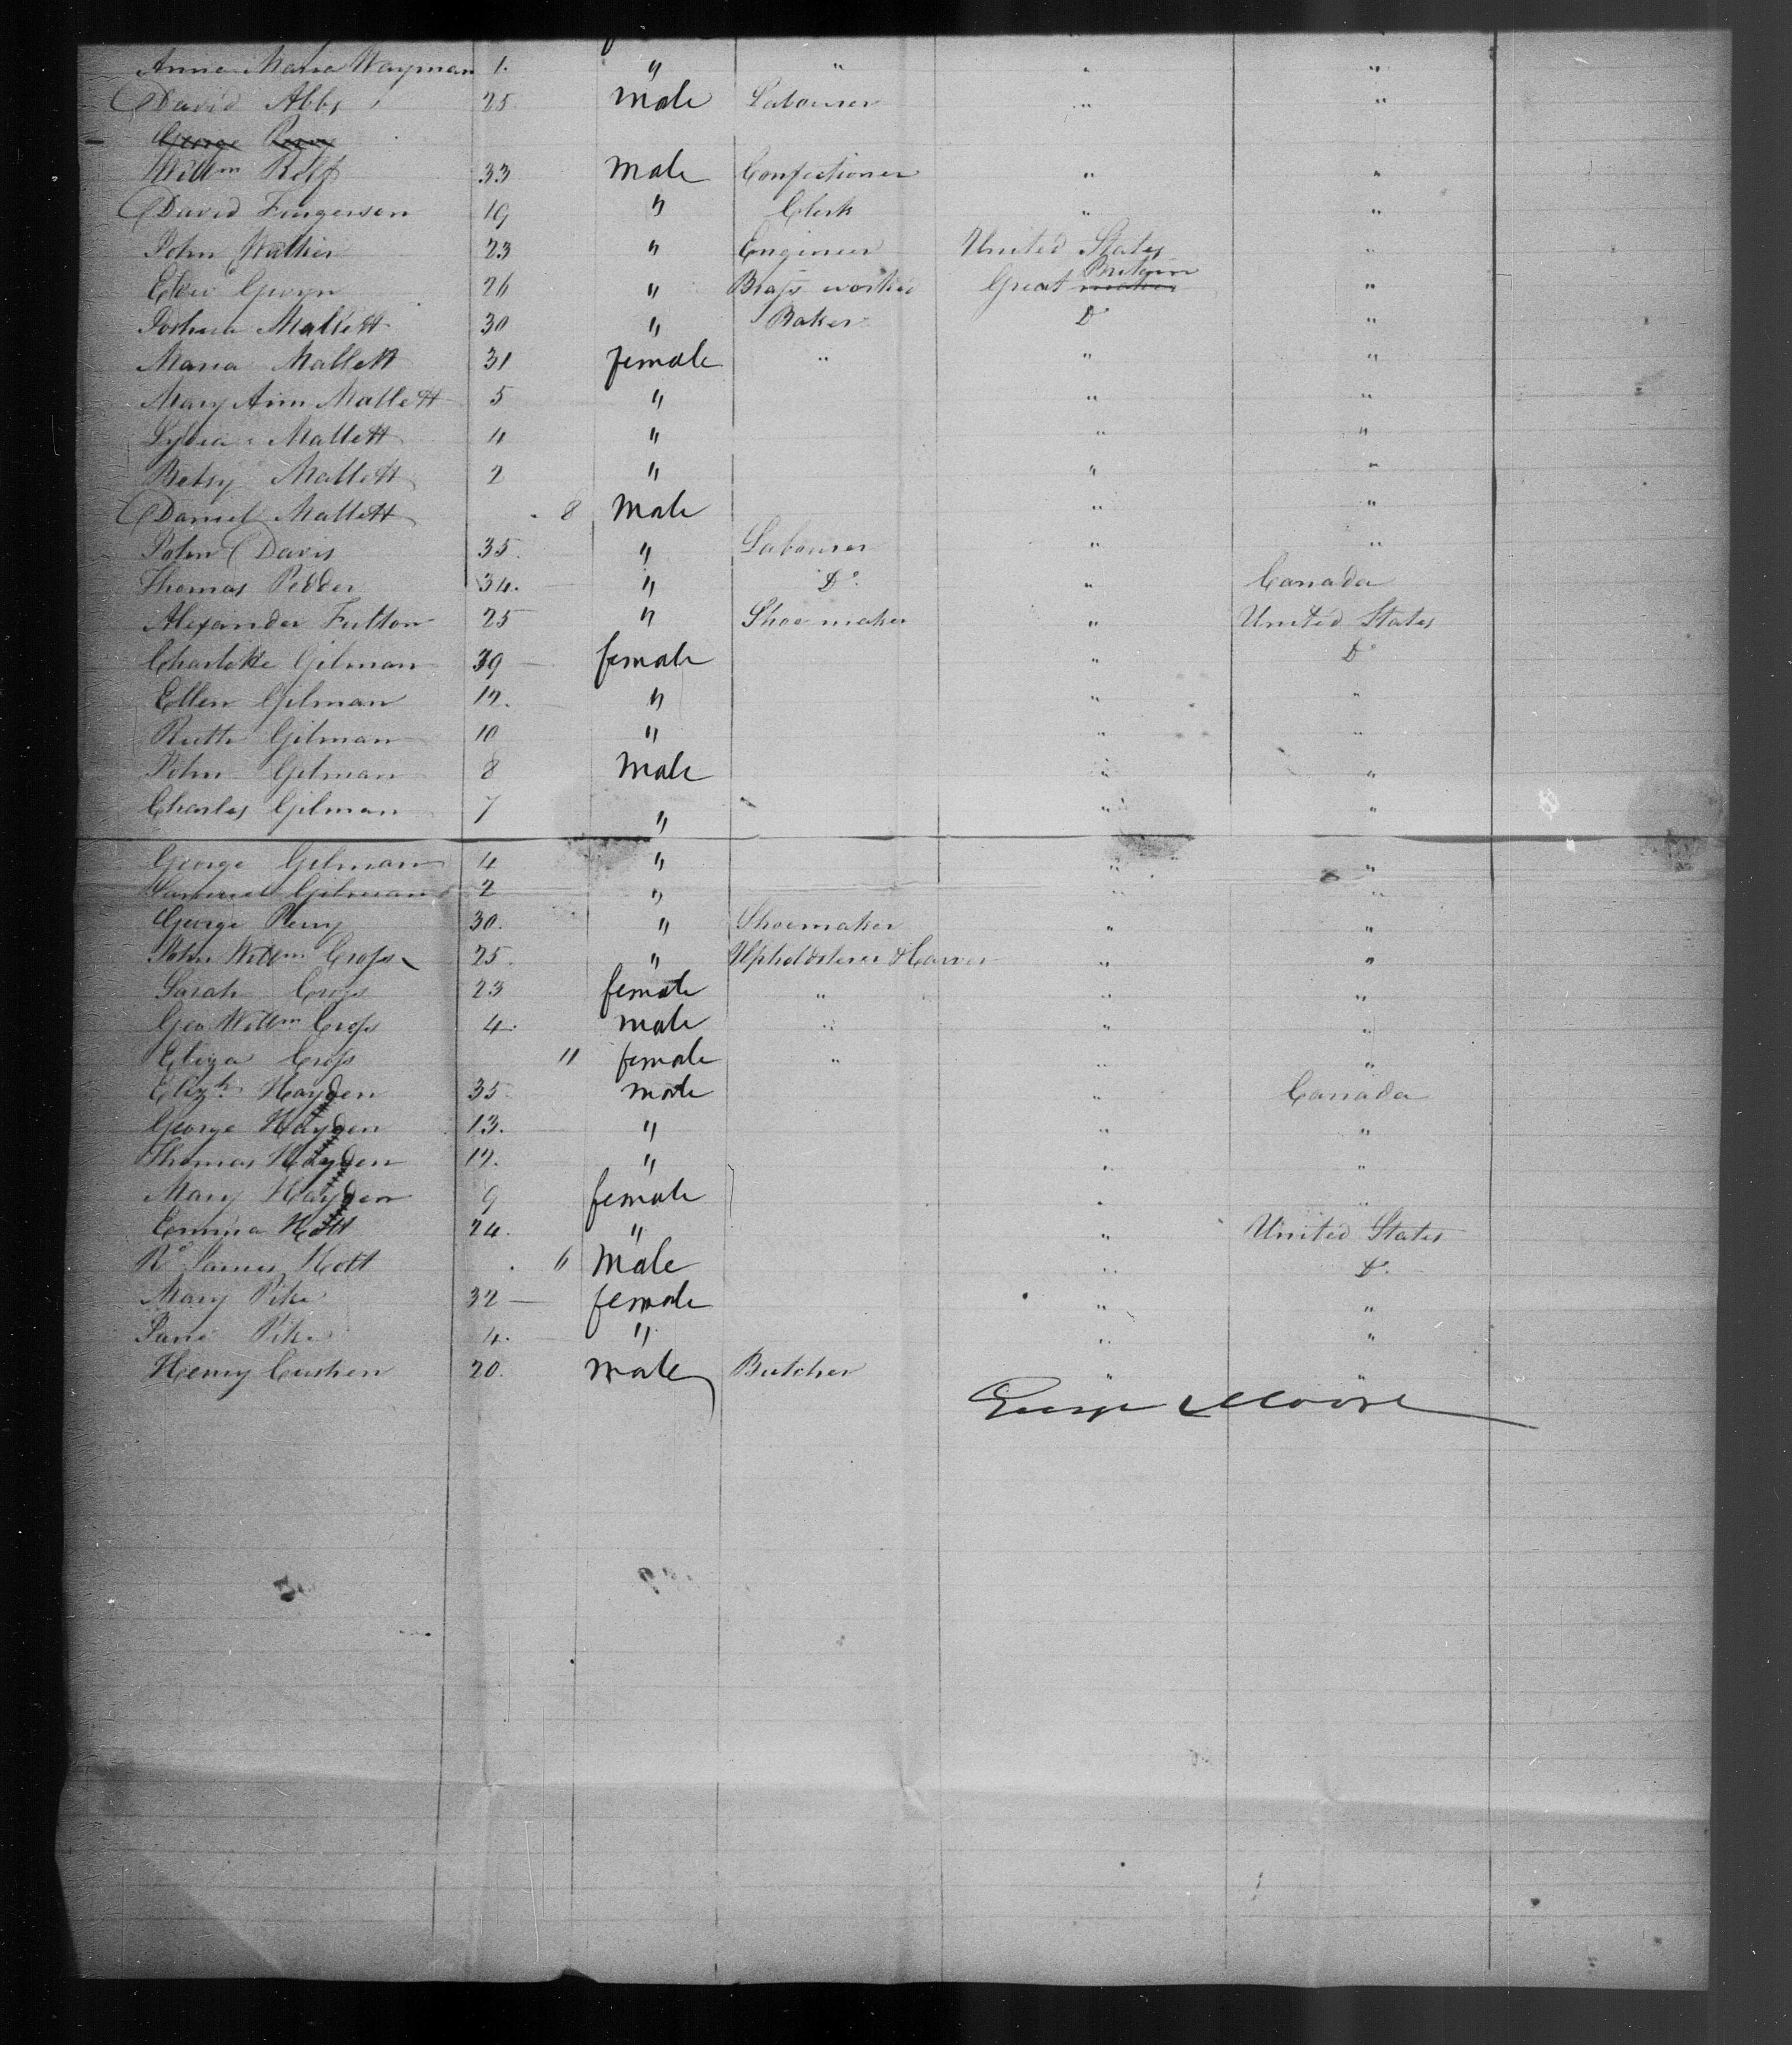 Anna Maria Wayman 1. " " " "
David Abbs 25. male Labourer " "
George Perry
Willm Relf 33 male Confectioner " "
David Fingerson 19 " Clerk " "
John Walker 23 " Engineer United States "
Gwyn 26 " Brass worker Great Britain "
Joshua Mallett 30 " Baker Do "
Maria Mallett 31 female " " "
Mary Ann Mallett 5 " " "
Lydia Mallett 4 " " "
Betsy Mallett 2 " " "
Daniel Mallett 8 Male " "
John Davis 35. " Labourer " "
Thomas Pedder 34. " Do. " Canada
Alexander Fulton 25 " Shoe maker " United States
Charlotte Gilman 39 female " Do
Ellen Gilman 12. " " "
Ruth Gilman 10 " " "
John Gilman 8 Male " "
Charles Gilman 7 " " "
George Gilman 4 " " "
Samuel Gilman 2 " " "
George Perry 30. " Shoemaker " "
John Willm Cross 25. " Upholdsterer & Carver " "
Sarah Cross 23 female " " "
Geo Willm Cross 4. male " " "
Eliza Cross 11 female " " "
Elizh Hayden 35 male " Canada
George Hayden 13. " " "
Thomas Hayden 12. " " "
Mary Hayden 9 female " "
Emma Hott 24. " " United States
Rd James Hott 6 Male " Do.
Mary Pike 32 female " "
Jane Pike 4. " " "
Henry Cushen 20. male Butcher " "
George Moore